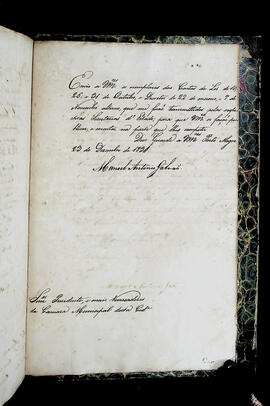 Envio a Vm.ces os exemplares das Cartas de Lei de
25, e 31 de Outubro, e Decretos de 22 do mesmo, e 7 de
Novembro ultimo, que me forão transmittidos pelas respec-
tivas Secretarias d'Estado, para que Vm.ces os fação pu-
blicar, e executar na parte que lhes compete.
Deos Guarde a Vm.ces Porto Alegre
23 de Dezembro de 1831
Manoel Antonio Galvão
Snr.s Presidente, e mais Vereadores
da Camara Municipal desta Cid.e